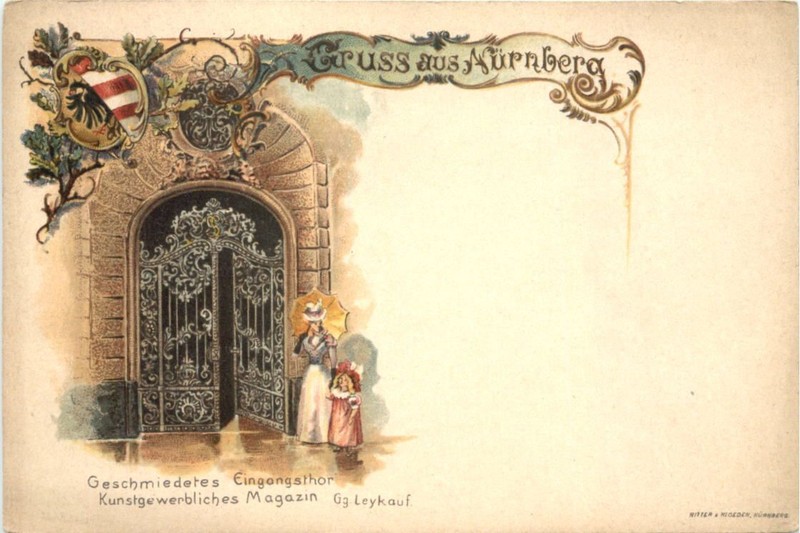 Gruss aus Nürnberg
Geschmiedetes Eingangsthor
Kunstgewerbliches Magazin Gg. Leykauf.
NÜRNBERG.